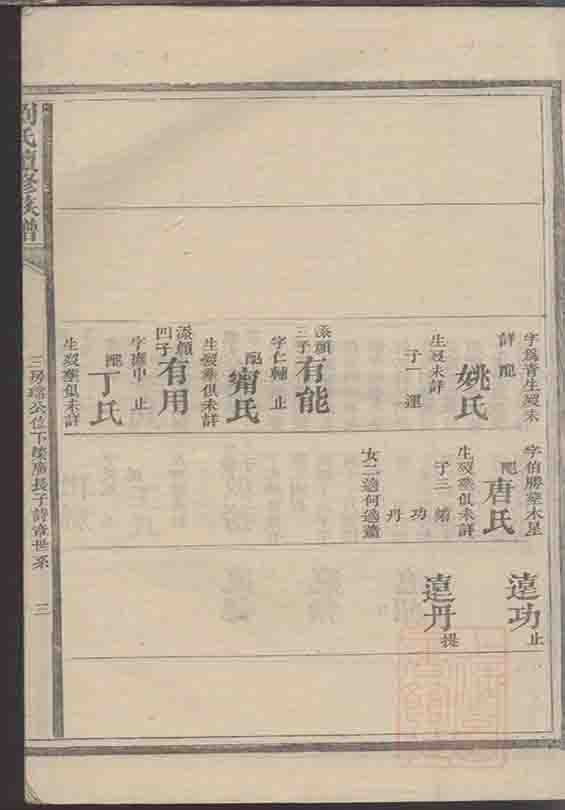 字為青生歿未
詳 配
姚氏
生歿未詳
子一 運
添顏
三子
有能
字仁輔 止
配
甯氏
生歿葬俱未詳
添顏
四子
有用
字 中 止
配
丁氏
生歿葬俱未詳
字伯勝葬木星
配
唐氏
生歿葬俱未詳
子三 
功
丹
女二適何適蕭
遠功
止
遠丹
提
劉氏 修族譜
三房 公位下榮廣長子詩章世系
三